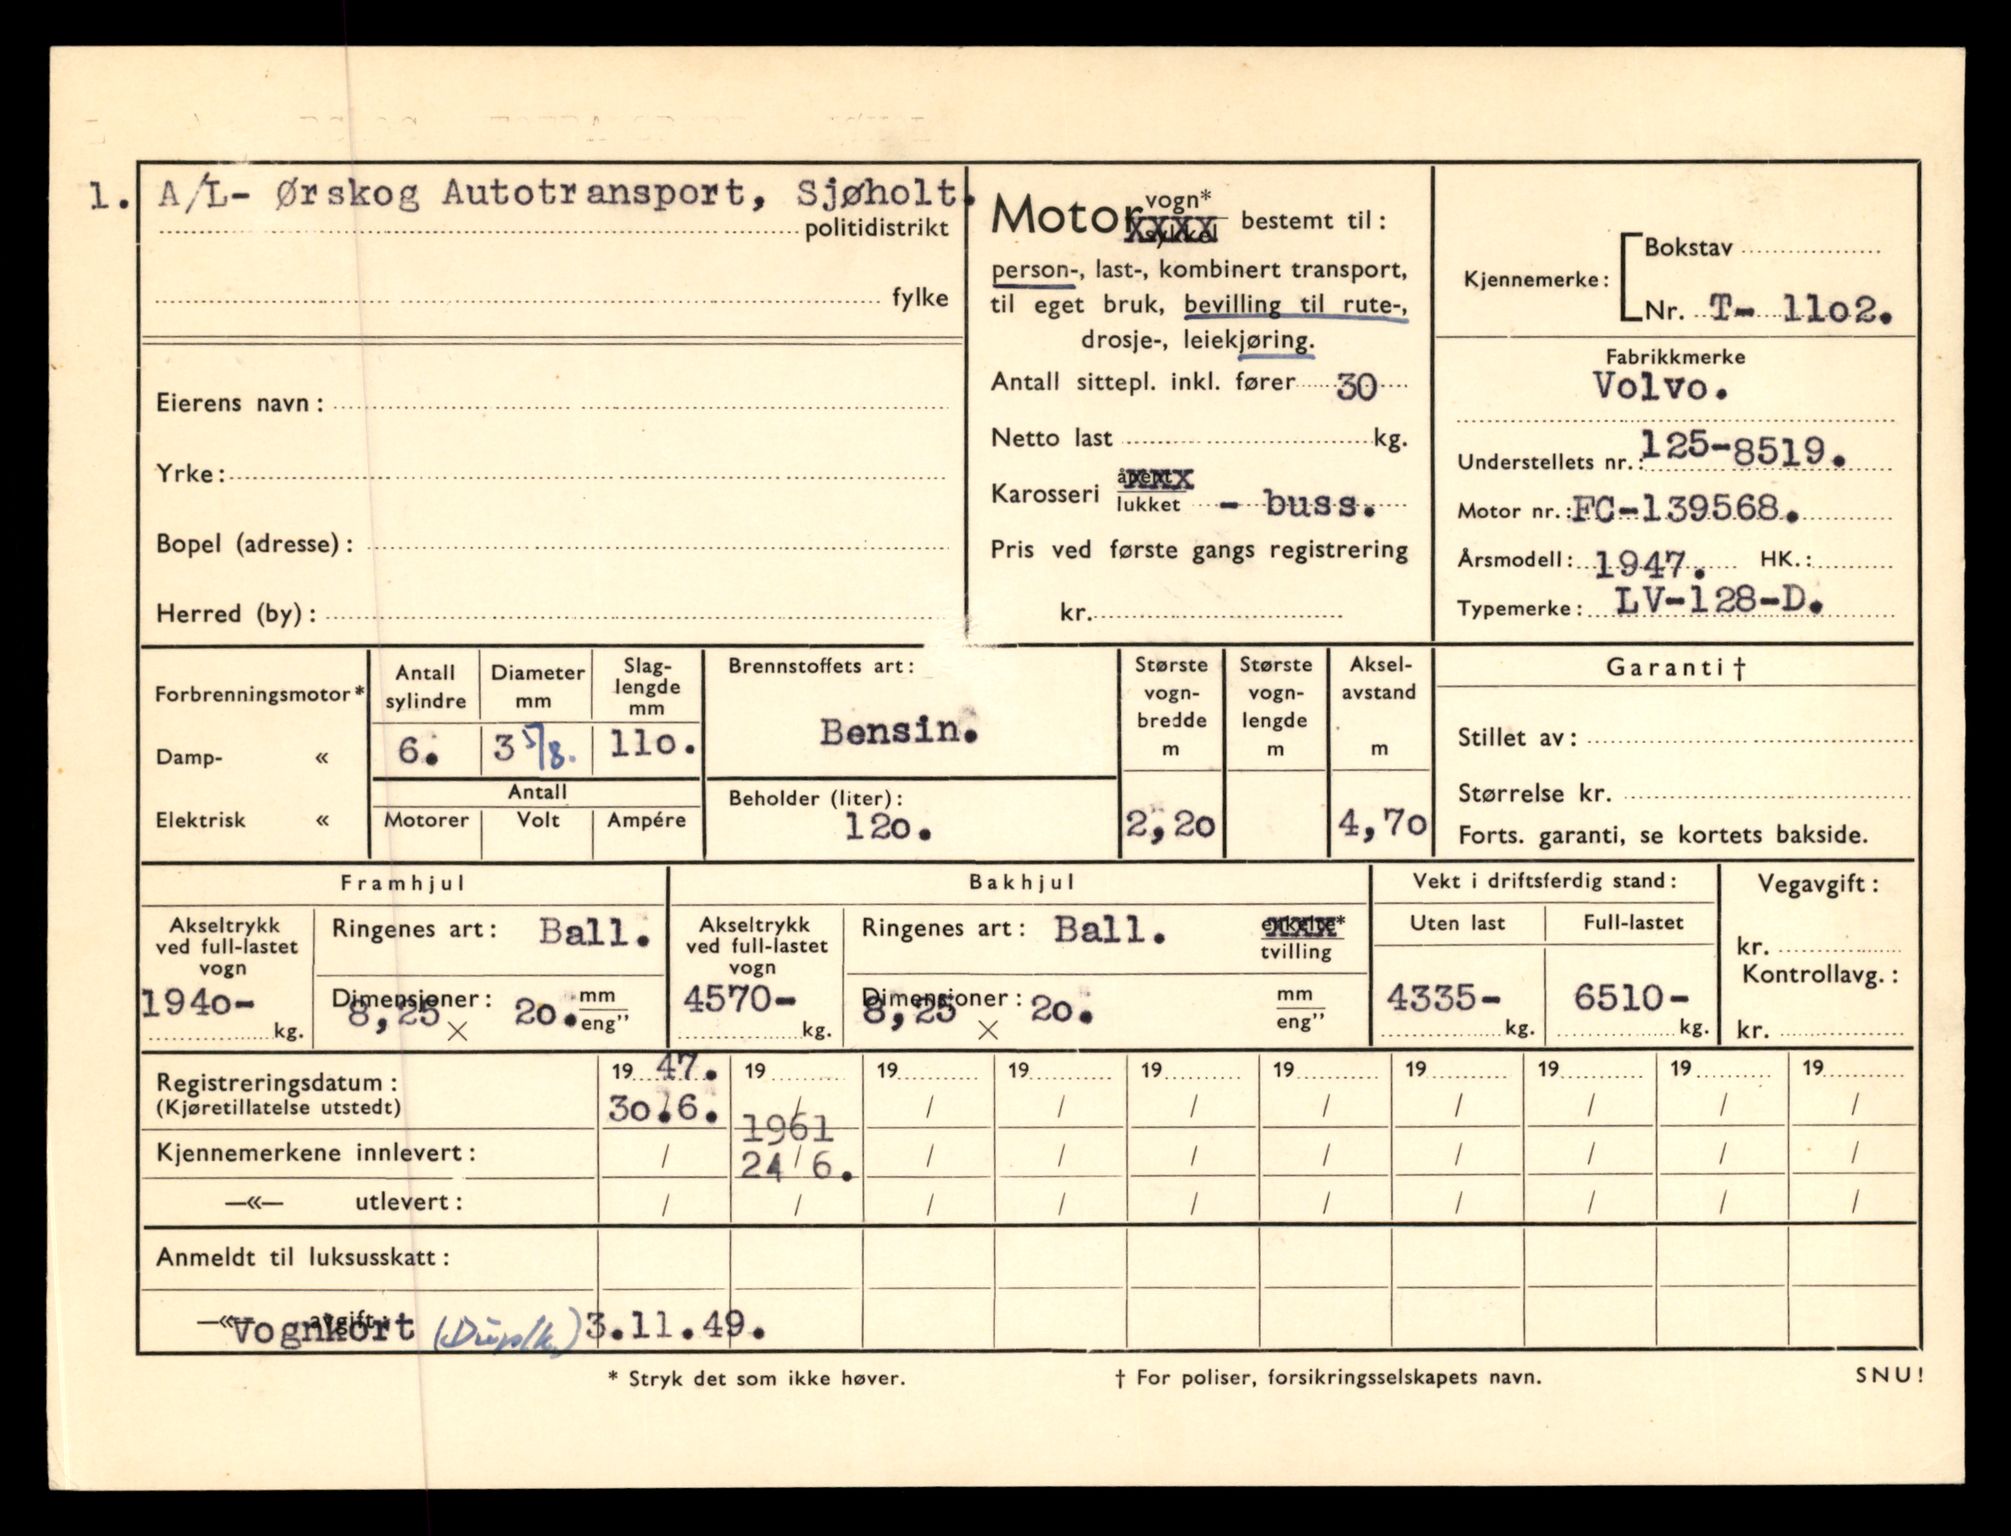 1. A/L- Ørskog Autotransport, Sjøholt.
politidistrikt
fylke
Eierens navn:
Yrke:
Bopel (adresse):
Herred (by):
Motor vogn*
sykkel bestemt til:
person-, last-, kombinert transport,
til eget bruk, bevilling til rute-,
drosje-, leiekjøring.
Antall sittepl. inkl. fører 30
Netto last kg.
Karosseri åpent
lukket - buss.
Pris ved første gangs registrering
kr.
Kjennemerke: Bokstav
Nr. T- 11o2.
Fabrikkmerke
Volvo.
Understellets nr.: 125-8519.
Motor nr.: FC-139568.
Årsmodell: 1947. HK.:
Typemerke: LV-128-D.
Forbrenningsmotor*
Damp- «
Elektrisk «
Antall sylindre
Diameter mm
Slag-lengde mm
6. 3 5/8. 11o.
Antall
Motorer Volt Ampére
Brennstoffets art:
Bensin.
Beholder (liter):
12o.
Største vogn-bredde m
2,2o
Største vogn-lengde m
Aksel-avstand m
4,7o
Garanti †
Stillet av:
Størrelse kr.
Forts. garanti, se kortets bakside.
Framhjul
Akseltrykk ved full-lastet vogn
194o- kg.
Ringenes art: Ball.
Dimensjoner: 8,25 × 2o. mm
eng”
Bakhjul
Akseltrykk ved full-lastet vogn
4570- kg.
Ringenes art: Ball. enkelte*
tvilling
Dimensjoner: 8,25 × 2o. mm
eng”
Vekt i driftsferdig stand:
Uten last Full-lastet
4335- kg. 6510- kg.
Vegavgift:
kr.
Kontrollavg.:
kr.
Registreringsdatum: 19 47. 19 19 19 19 19 19 19 19 19
(Kjøretillatelse utstedt) 3o.6. / / / / / / / / /
1961
Kjennemerkene innlevert: / 24/6. / / / / / / / /
—«— utlevert: / / / / / / / / / /
Anmeldt til luksusskatt:
—«— avgift:
Vognkort (Duplk.) 3.11.49.
* Stryk det som ikke høver. † For poliser, forsikringsselskapets navn. SNU!